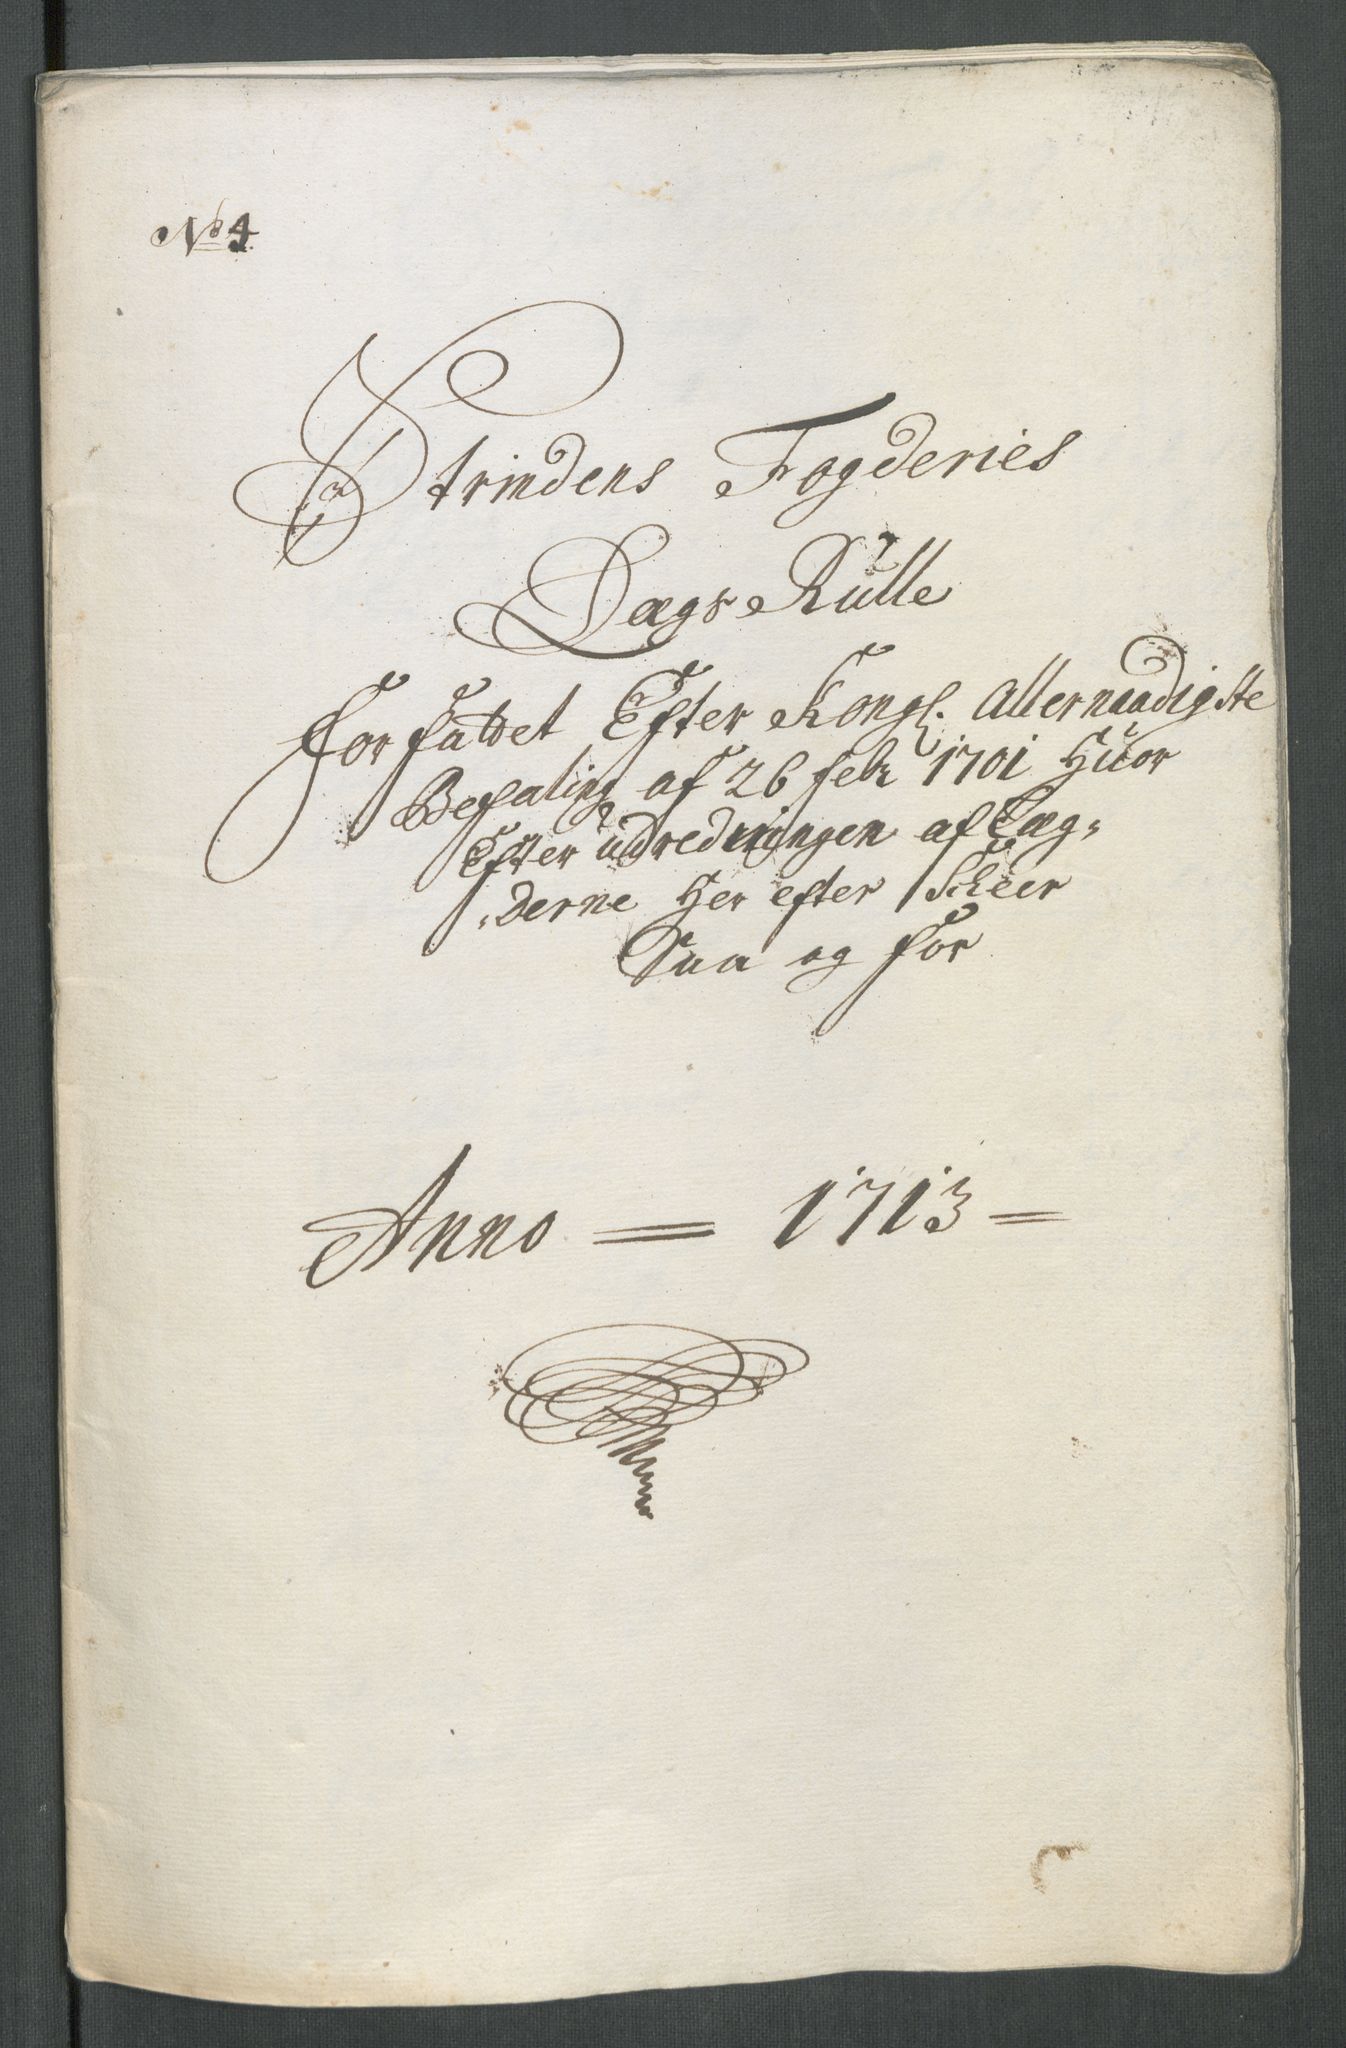 No 4
Strindens Fogderies
Lægs Rulle
Forfattet Efter Kongl. Allernaadigste
Befaling af 26 febr 1701 Huor
Efter udredningen af Læg,
,derne Her efter Skeer
Saa og for
Anno = 1713 =